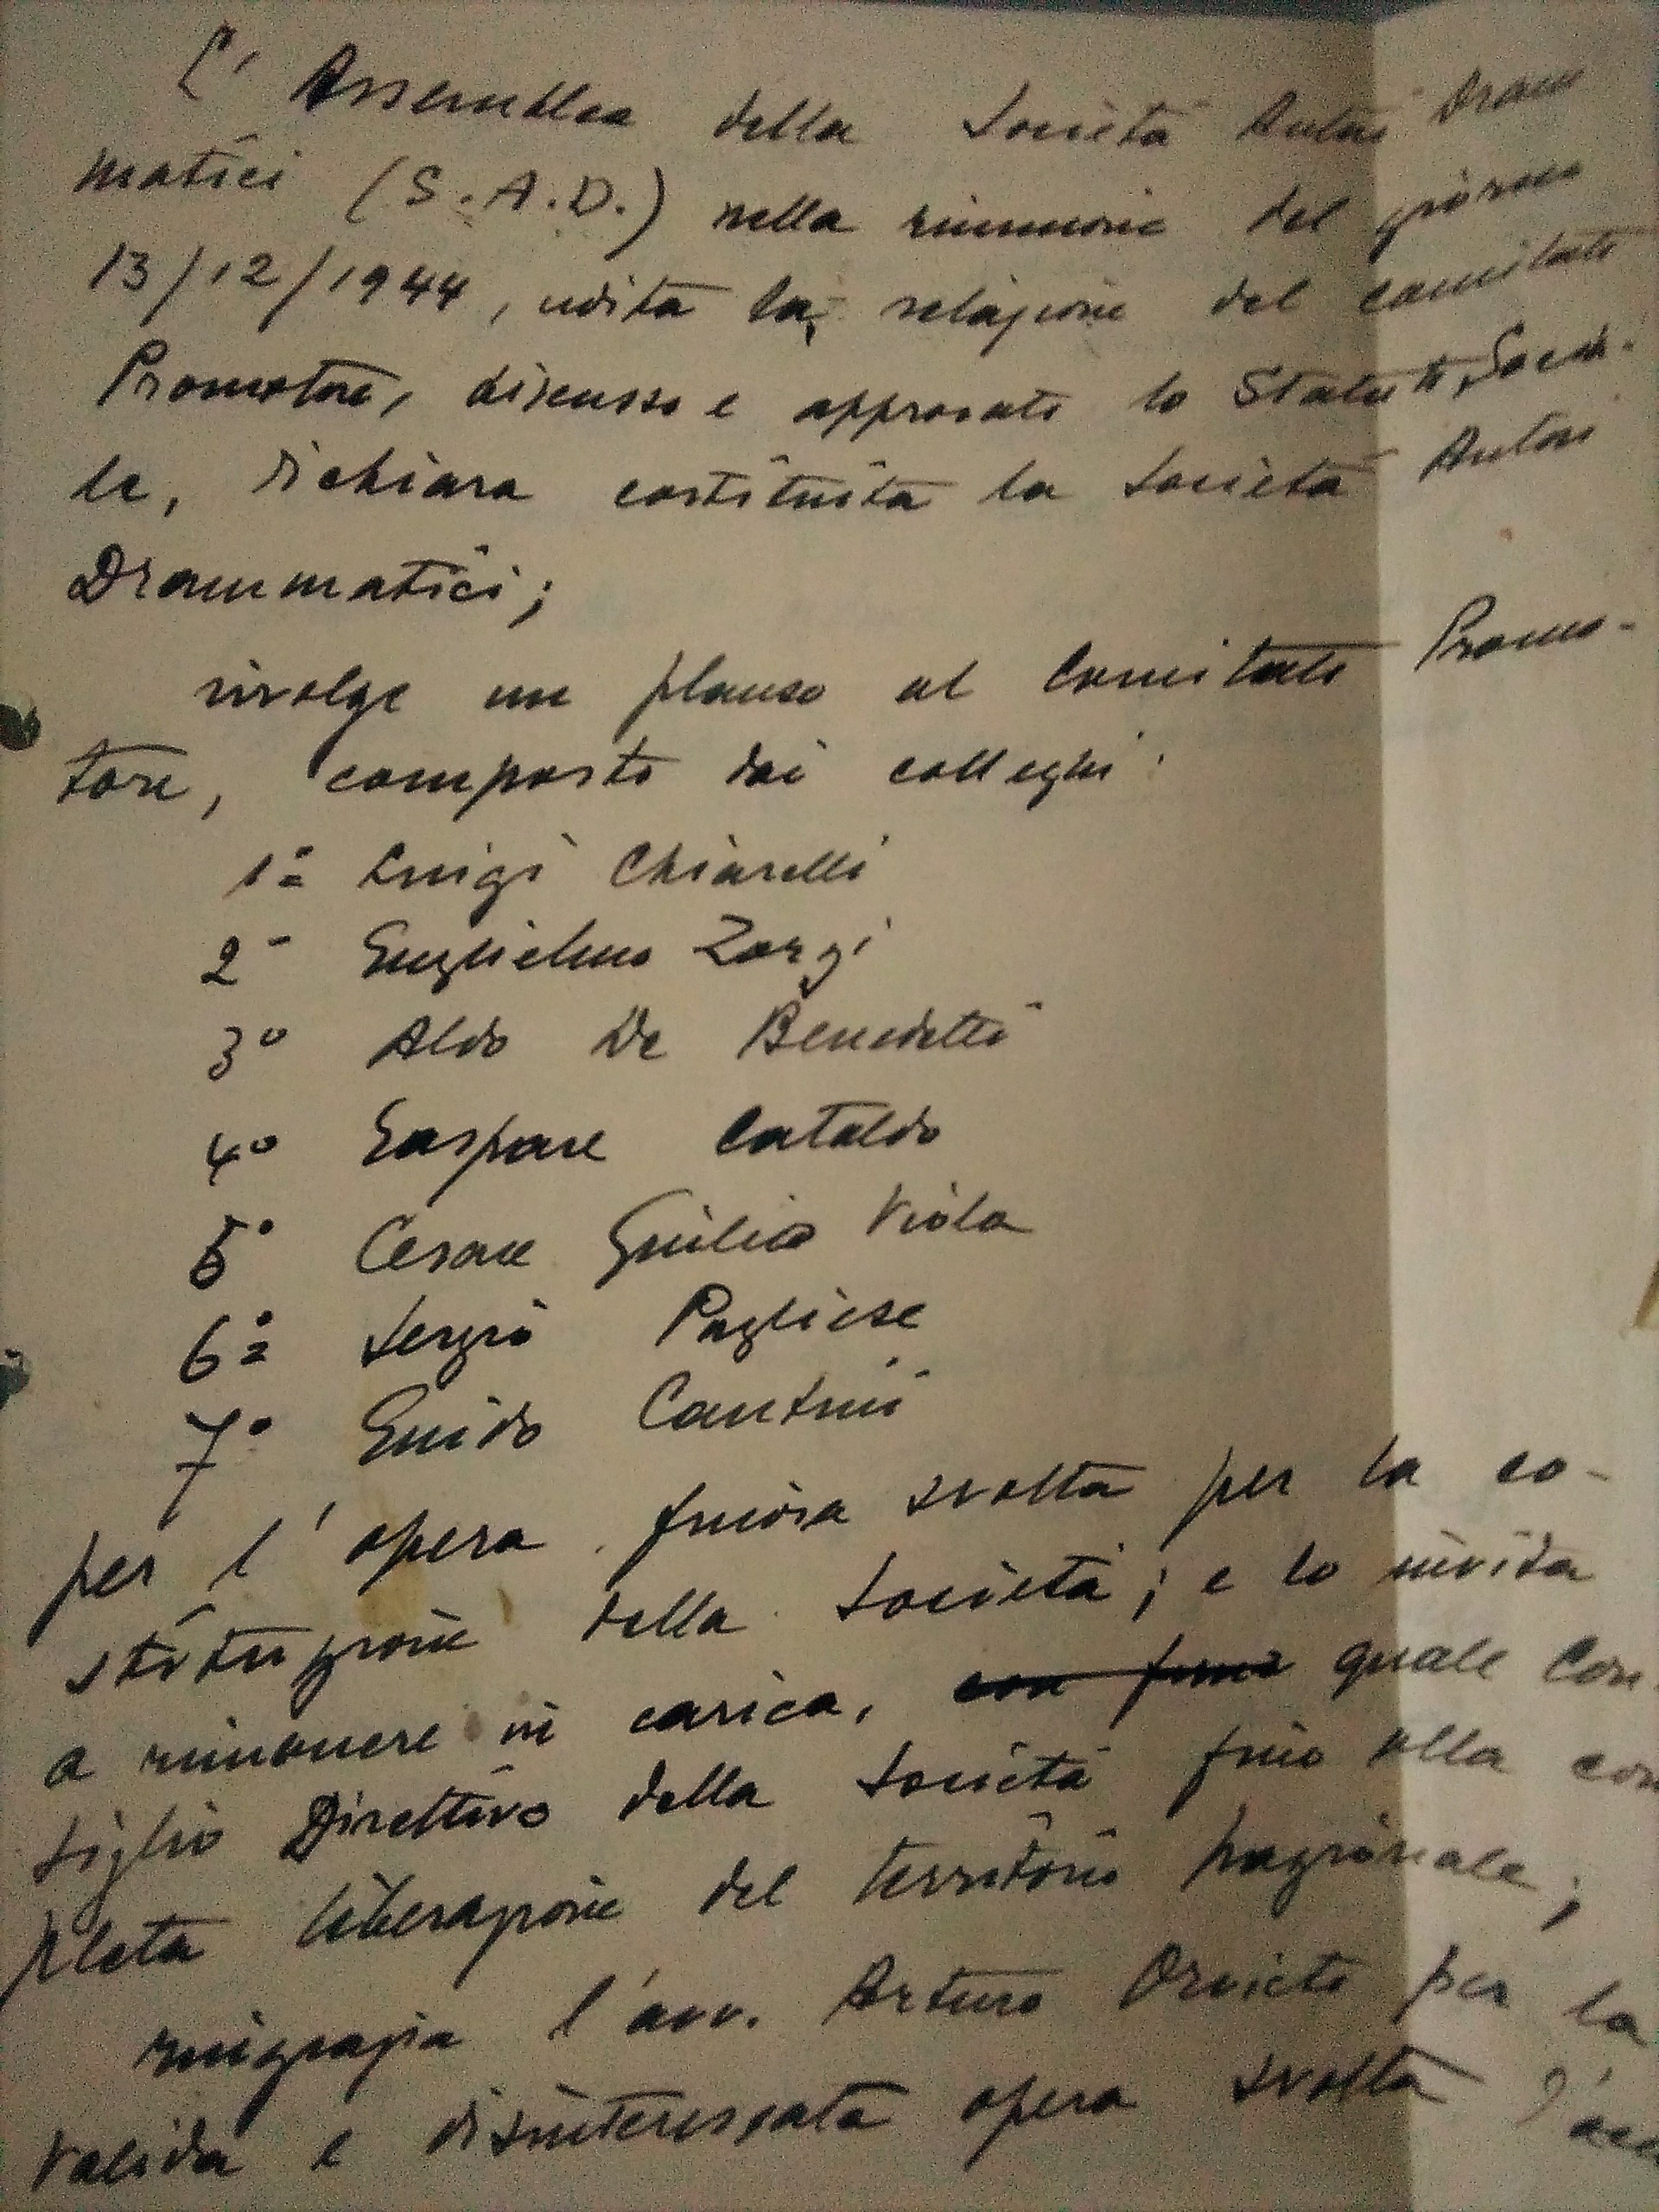 L' Assemblea della Società Autori Dram
matici (S.A.D.) nella riunione del giorno
13/12/1944, udita la relazione del comitato
Promotore, discusso e approvato lo Statuto Socia-
le, dichiara costituita la Società Autori
Drammatici;
rivolge un plauso al Comitato Promo-
tore, composto dai colleghi:
1° Luigi Chiarelli
2° Guglielmo Zorzi
3° Aldo De Benedetti
4° Gaspare Cataldo
5° Cesare Giulio Viola
6° Sergio Pugliese
7° Guido Cantini
per l'opera svolta per la co-
stituzione della Società; e lo invita
a rimanere in carica, quale Con-
siglio Direttivo della Società fino alla com
pleta liberazione del territorio nazionale;
ringrazia l'avv. Arturo Orvieto per la
valida e disinteressata opera svolta